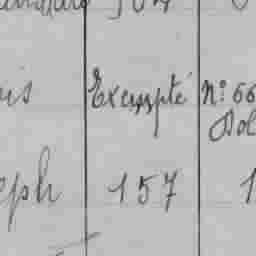 is Exempté N° 66
Dol
eph 157 1